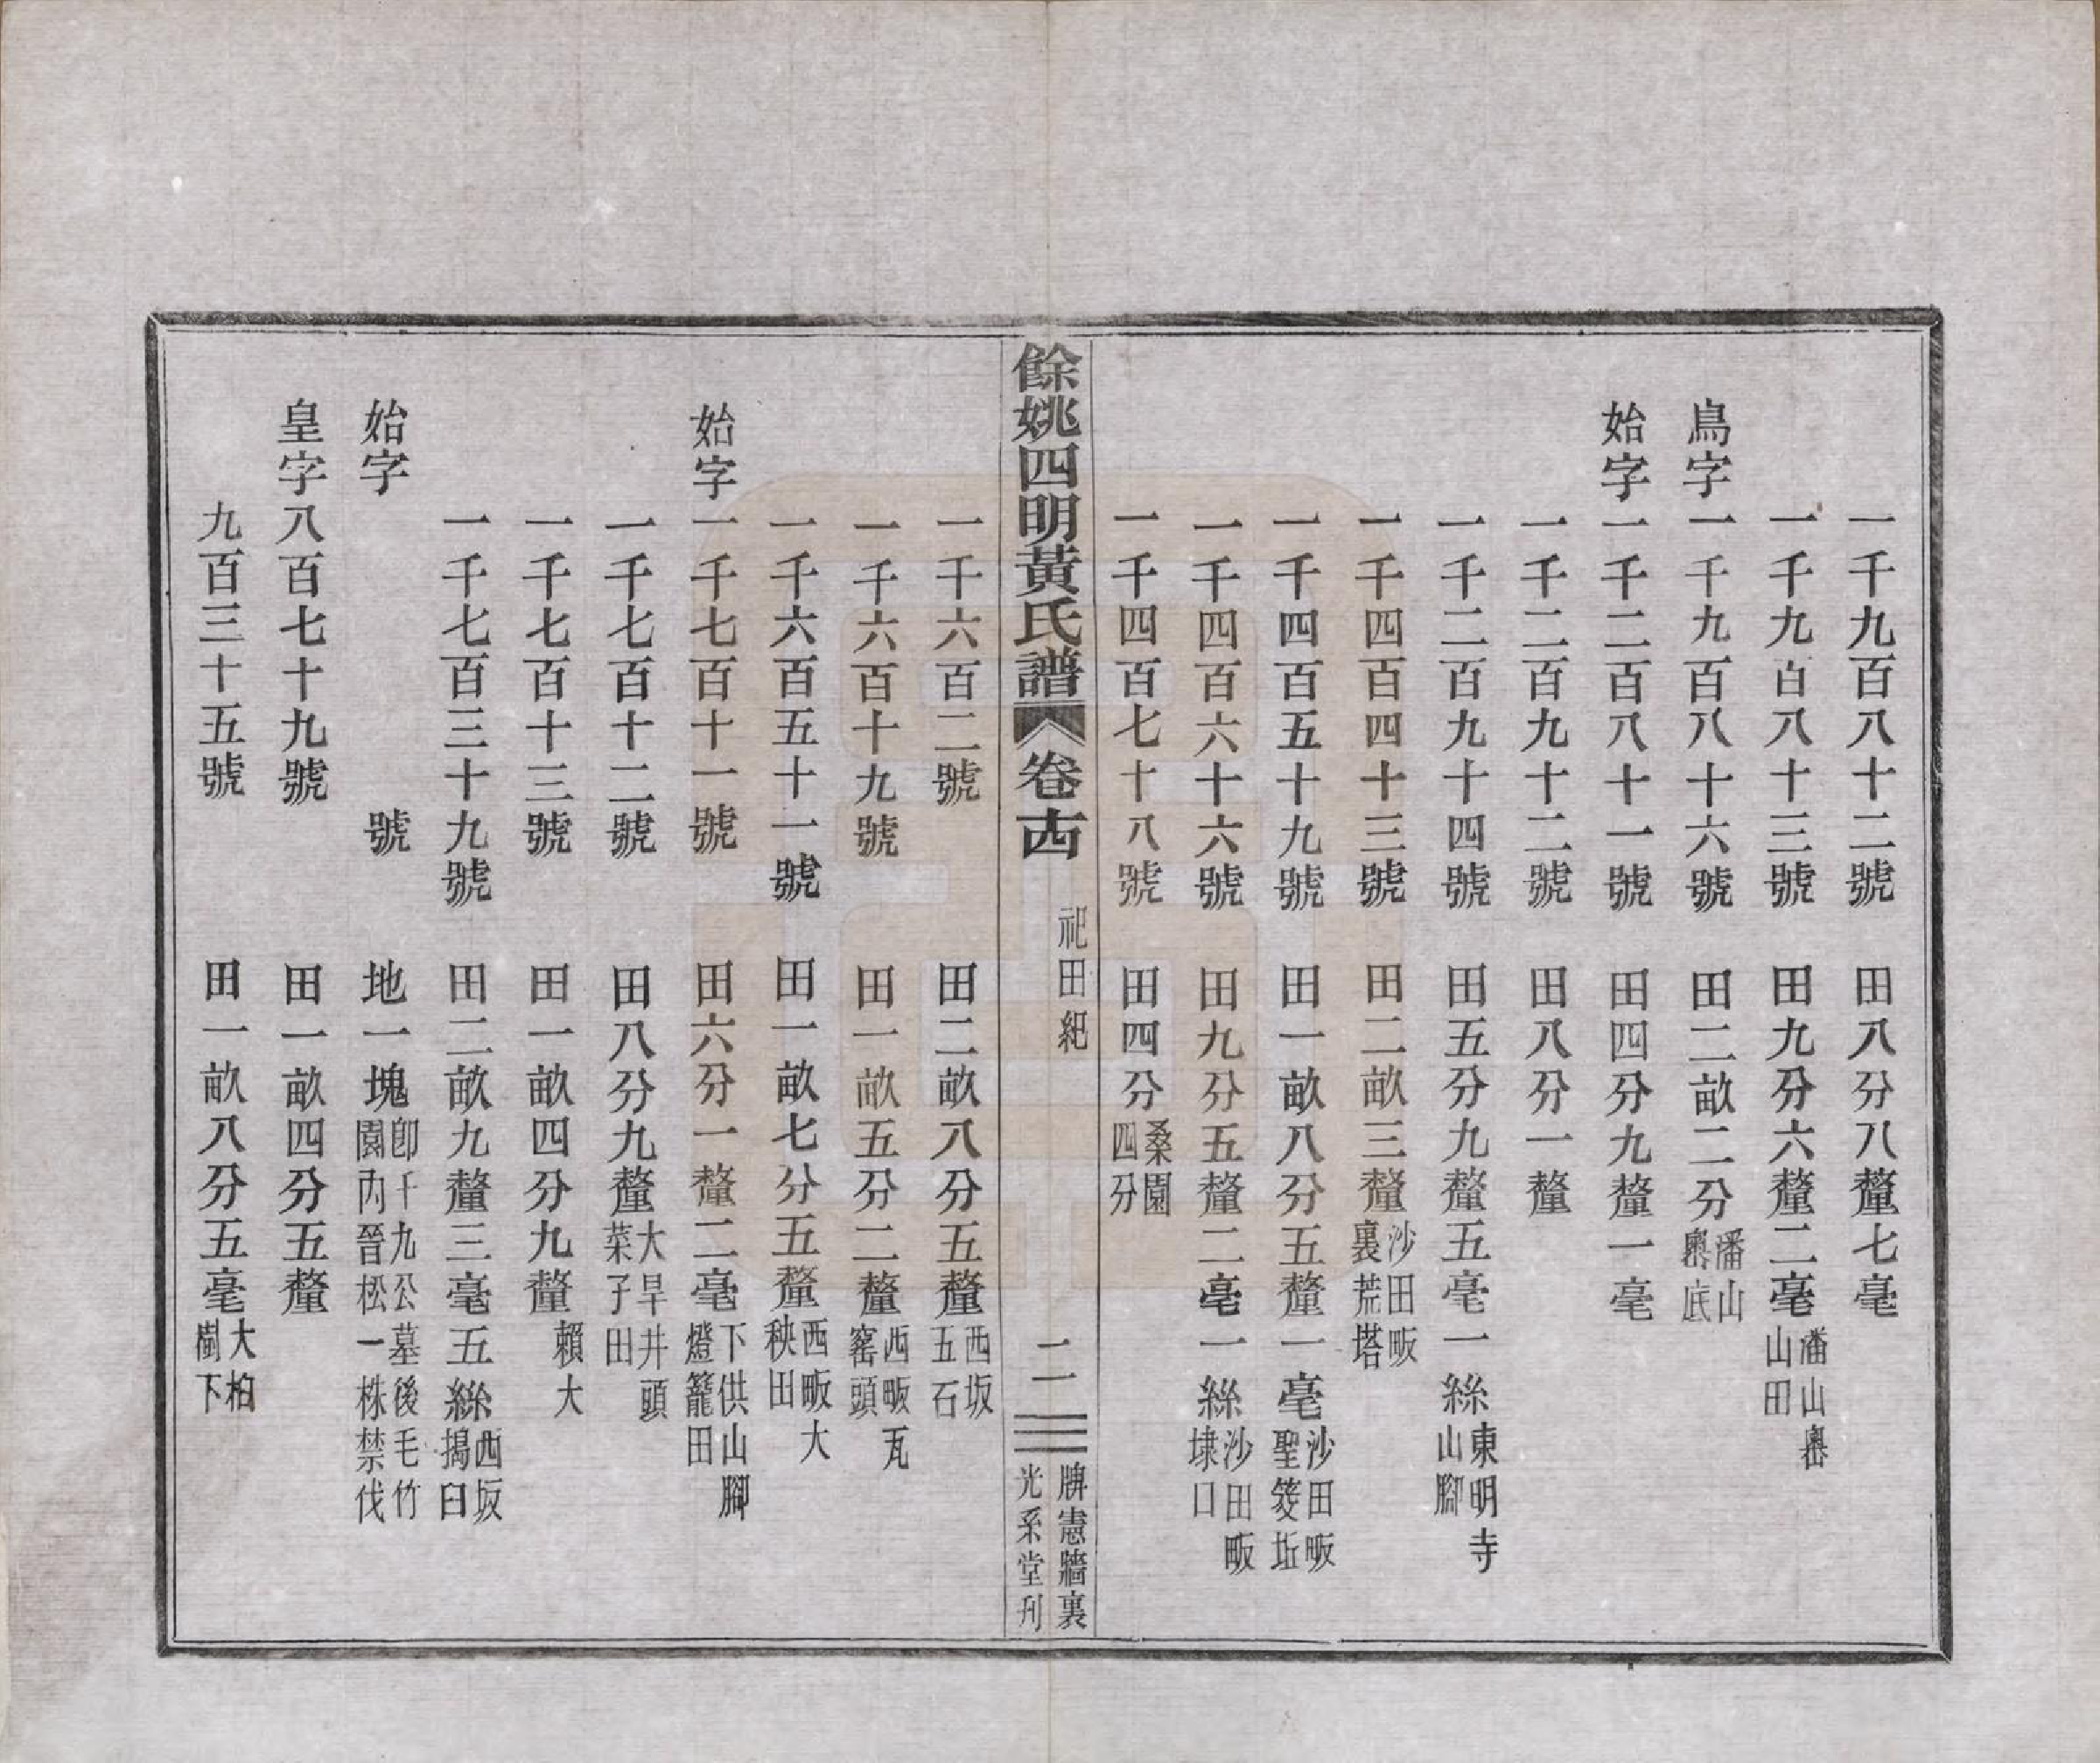 一千九百八十二號 田八分八釐七毫
一千九百八十三號 田九分六釐二毫 潘山嶴山田
鳥字一千九百八十六號 田二畝二分 潘山嶴底
始字一千二百八十一號 田四分九釐一毫
一千二百九十二號 田八分一釐
一千二百九十四號 田五分九釐五毫一絲 東明寺山腳
一千四百四十三號 田二畝三釐 沙田畈裏荒塔
一千四百五十九號 田一畝八分五釐一毫 沙田畈聖筊坵
一千四百六十六號 田九分五釐二毫一絲 沙田畈埭口
一千四百七十八號 田四分 桑園四分
餘姚四明黃氏譜 卷十四 祀田紀 二 牌憲牆裏 光系堂刊
一千六百二號 田二畝八分五釐 西坂五石
一千六百十九號 田一畝五分二釐 西畈瓦窰頭
一千六百五十一號 田一畝七分五釐 西畈大秧田
始字一千七百十一號 田六分一釐二毫 下供山腳燈籠田
一千七百十二號 田八分九釐 大旱井頭菜子田
一千七百十三號 田一畝四分九釐 賴大
一千七百三十九號 田二畝九釐三毫五絲 西坂搗臼
始字 號 地一塊 卽千九公墓後毛竹園內晉松一株禁伐
皇字八百七十九號 田一畝四分五釐
九百三十五號 田一畝八分五毫 大柏樹下